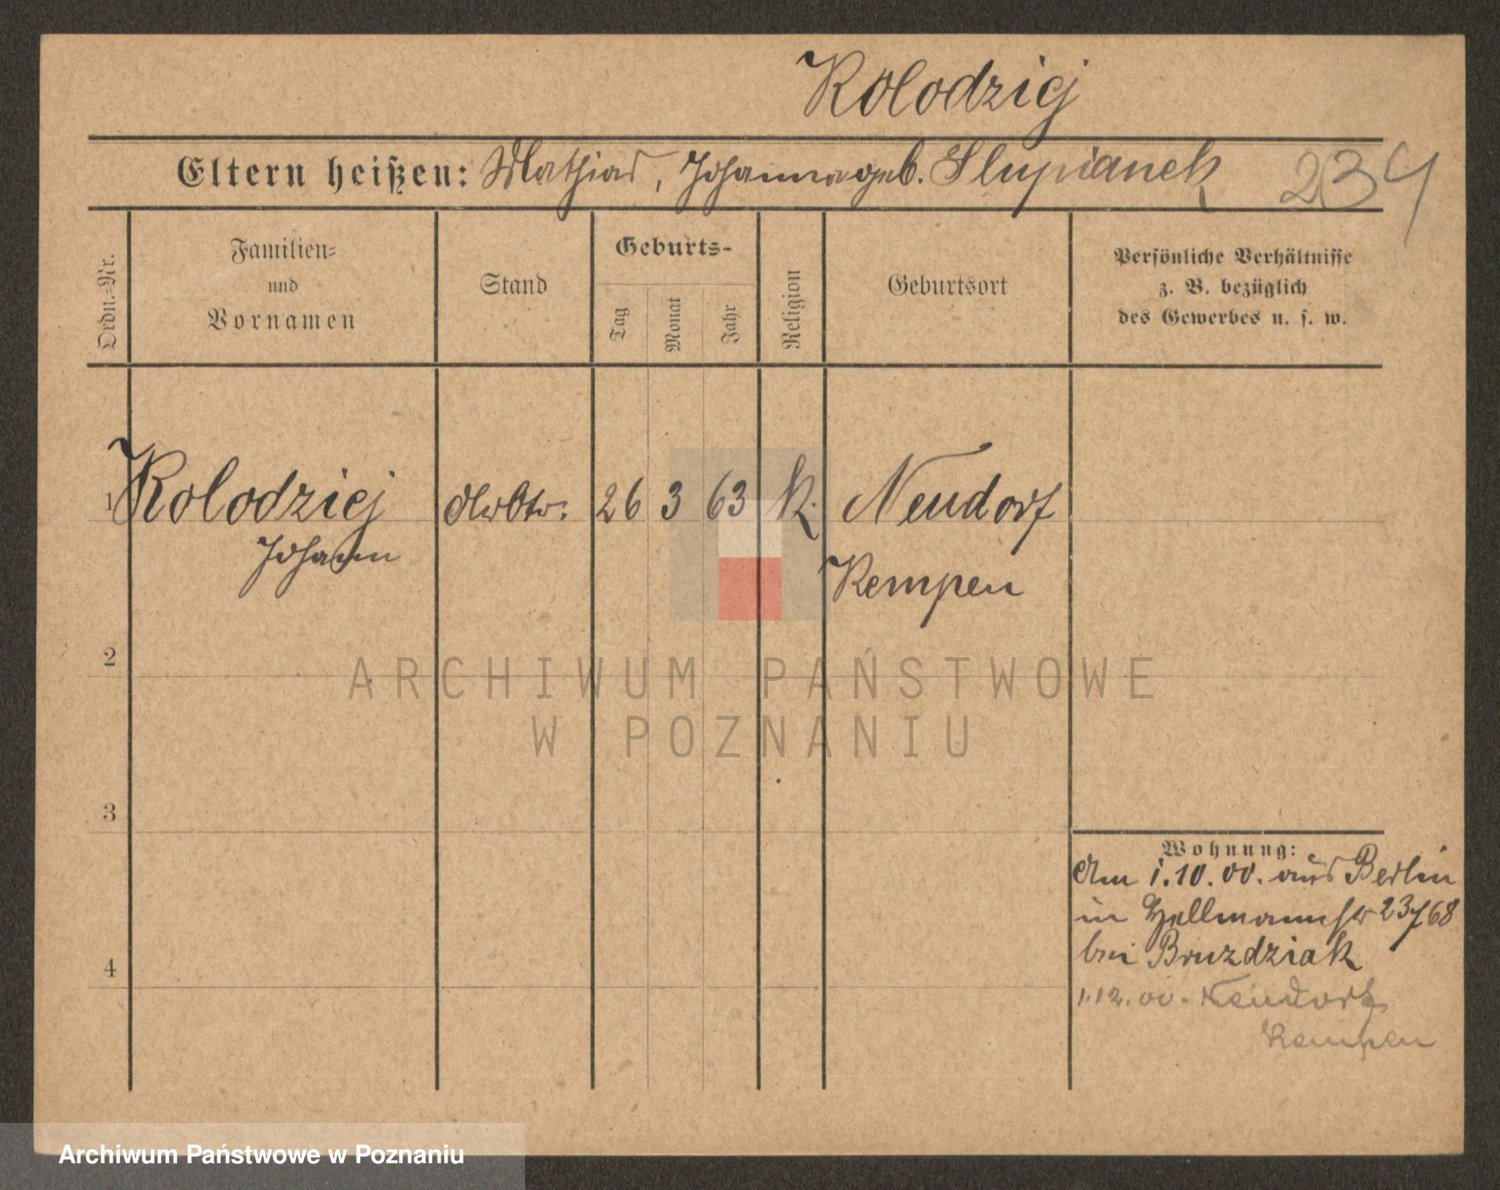 Kolodziej
Eltern heißen: Mathias, Johanna geb. Slupianek 234
Ordn.-Nr.
Familien-
und
Vornamen
Stand
Geburts-
Tag
Monat
Jahr
Religion
Geburtsort
Persönliche Verhältnisse
z. B. bezüglich
des Gewerbes u. s. w.
1 Kolodziej Arbtr. 26 3 63 K. Neudorf
Johann Kempen
2
ARCHIWUM PAŃSTWOWE
W POZNANIU
3
Wohnung:
Am 1.10.00. aus Berlin
in 23/68
bei Bruzdziak
4
1.12.00. Neudorf
Kempen
Archiwum Państwowe w Poznaniu